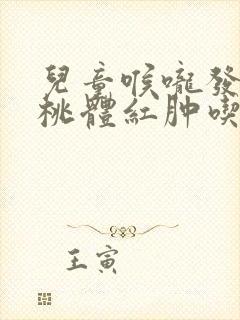 兒童喉嚨發
桃體紅肿喫
王寅